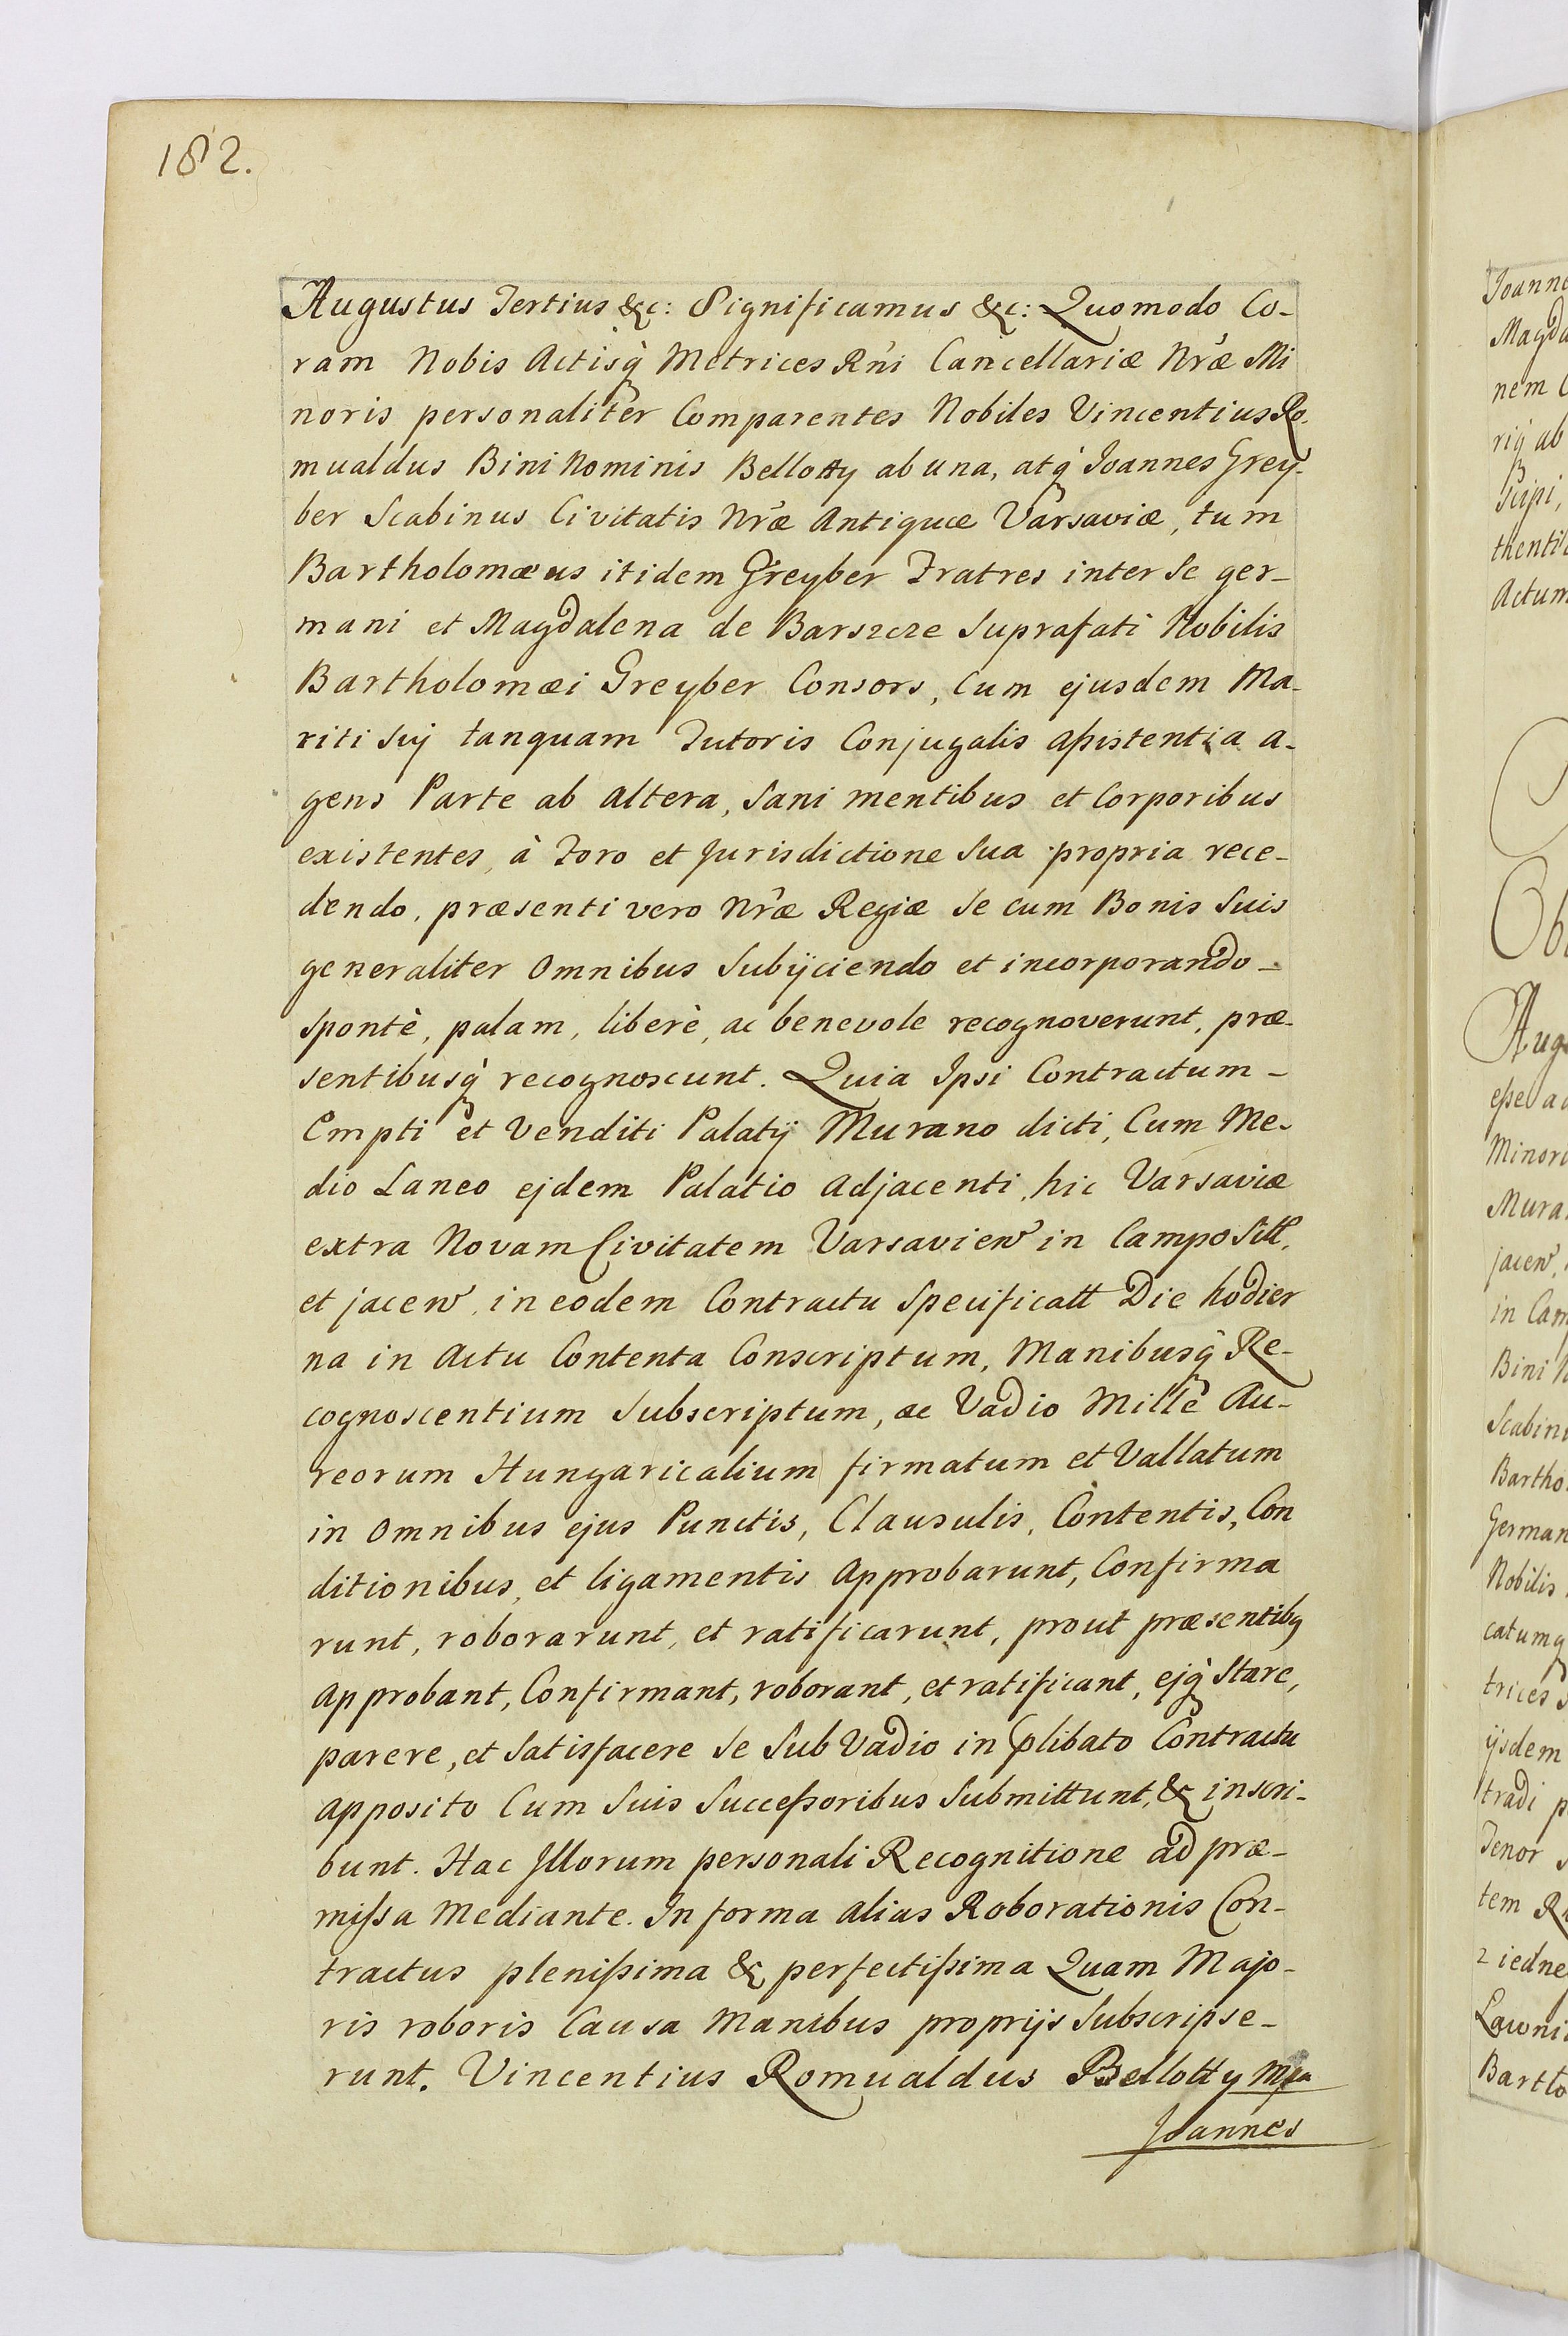 182.
Augustus Tertius &c: Significamus &c: Quomodo Co-
ram Nobis Actisq̀ Metrices Rñi Cancellariæ Nræ Mi
noris personaliter Comparentes Nobiles Vincentius Ro-
mualdus Bini Nominis Bellotty ab una, atq̀ Joannes Grey-
ber Scabinus Civitatis Nræ Antiquæ Varsaviæ, tum
Bartholomæus itidem Greyber Fratres inter Se ger-
mani et Magdalena de Barszcze Suprafati Nobilis
Bartholomæi Greyber Consors, Cum ejusdem Ma-
riti Suj tanquam Tutoris Conjugalis aßistentia a-
gens Parte ab altera, Sani mentibus et Corporibus
existentes, à Foro et Jurisdictione Sua propria rece-
dendo, præsenti vero Nræ Regiæ Se cum Bonis Suis
generaliter Omnibus Subijciendo et incorporando -
Spontè, palam, liberè, ac benevole recognoverunt, præ-
sentibusq̀ recognoscunt. Quia Ipsi Contractum -
Empti et Venditi Palatij Murano dicti, Cum Me-
dio Laneo ejdem Palatio adjacenti, hic Varsaviæ
extra Novam Civitatem Varsavien̄ in Campo Sitt,
et jacen̄, in eodem Contractu Specificatt Die hodier
na in Actu Contenta Conscriptum, Manibusq̀ Re-
cognoscentium Subscriptum, ac Vadio Mille Au-
reorum Hungaricalium firmatum et Vallatum
in Omnibus ejus Punctis, Clausulis, Contentis, Con
ditionibus, et ligamentis Approbarunt, Confirma
runt, roborarunt, et ratificarunt, prout præsentibꝰ
Approbant, Confirmant, roborant, et ratificant, ejq̀ Stare,
parere, et Satisfacere Se Sub Vadio in plibato Contractu
apposito Cum Suis Succeßoribus Submittunt, & inscri-
bunt. Hac Illorum personali Recognitione ad præ-
mißa Mediante. In forma alias Roborationis Con-
tractus plenißima & perfectißima Quam Majo-
ris roboris Causa Manibus proprijs Subscripse-
runt. Vincentius Romualdus Bellotty mpa
Joannes